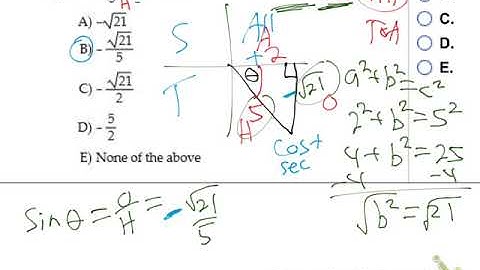 A) -√21
B) - √21/5
C) - √21/2
D) - 5/2
E) None of the above
S
All
A
+ 2
T
θ
4
-√21
O
5
H
Cos+
sec
C.
D.
E.
T&A
a²+b²=c²
2²+b²=5²
4+b²=25
-4 -4
√b²=√21
Sinθ = O/H = - √21/5